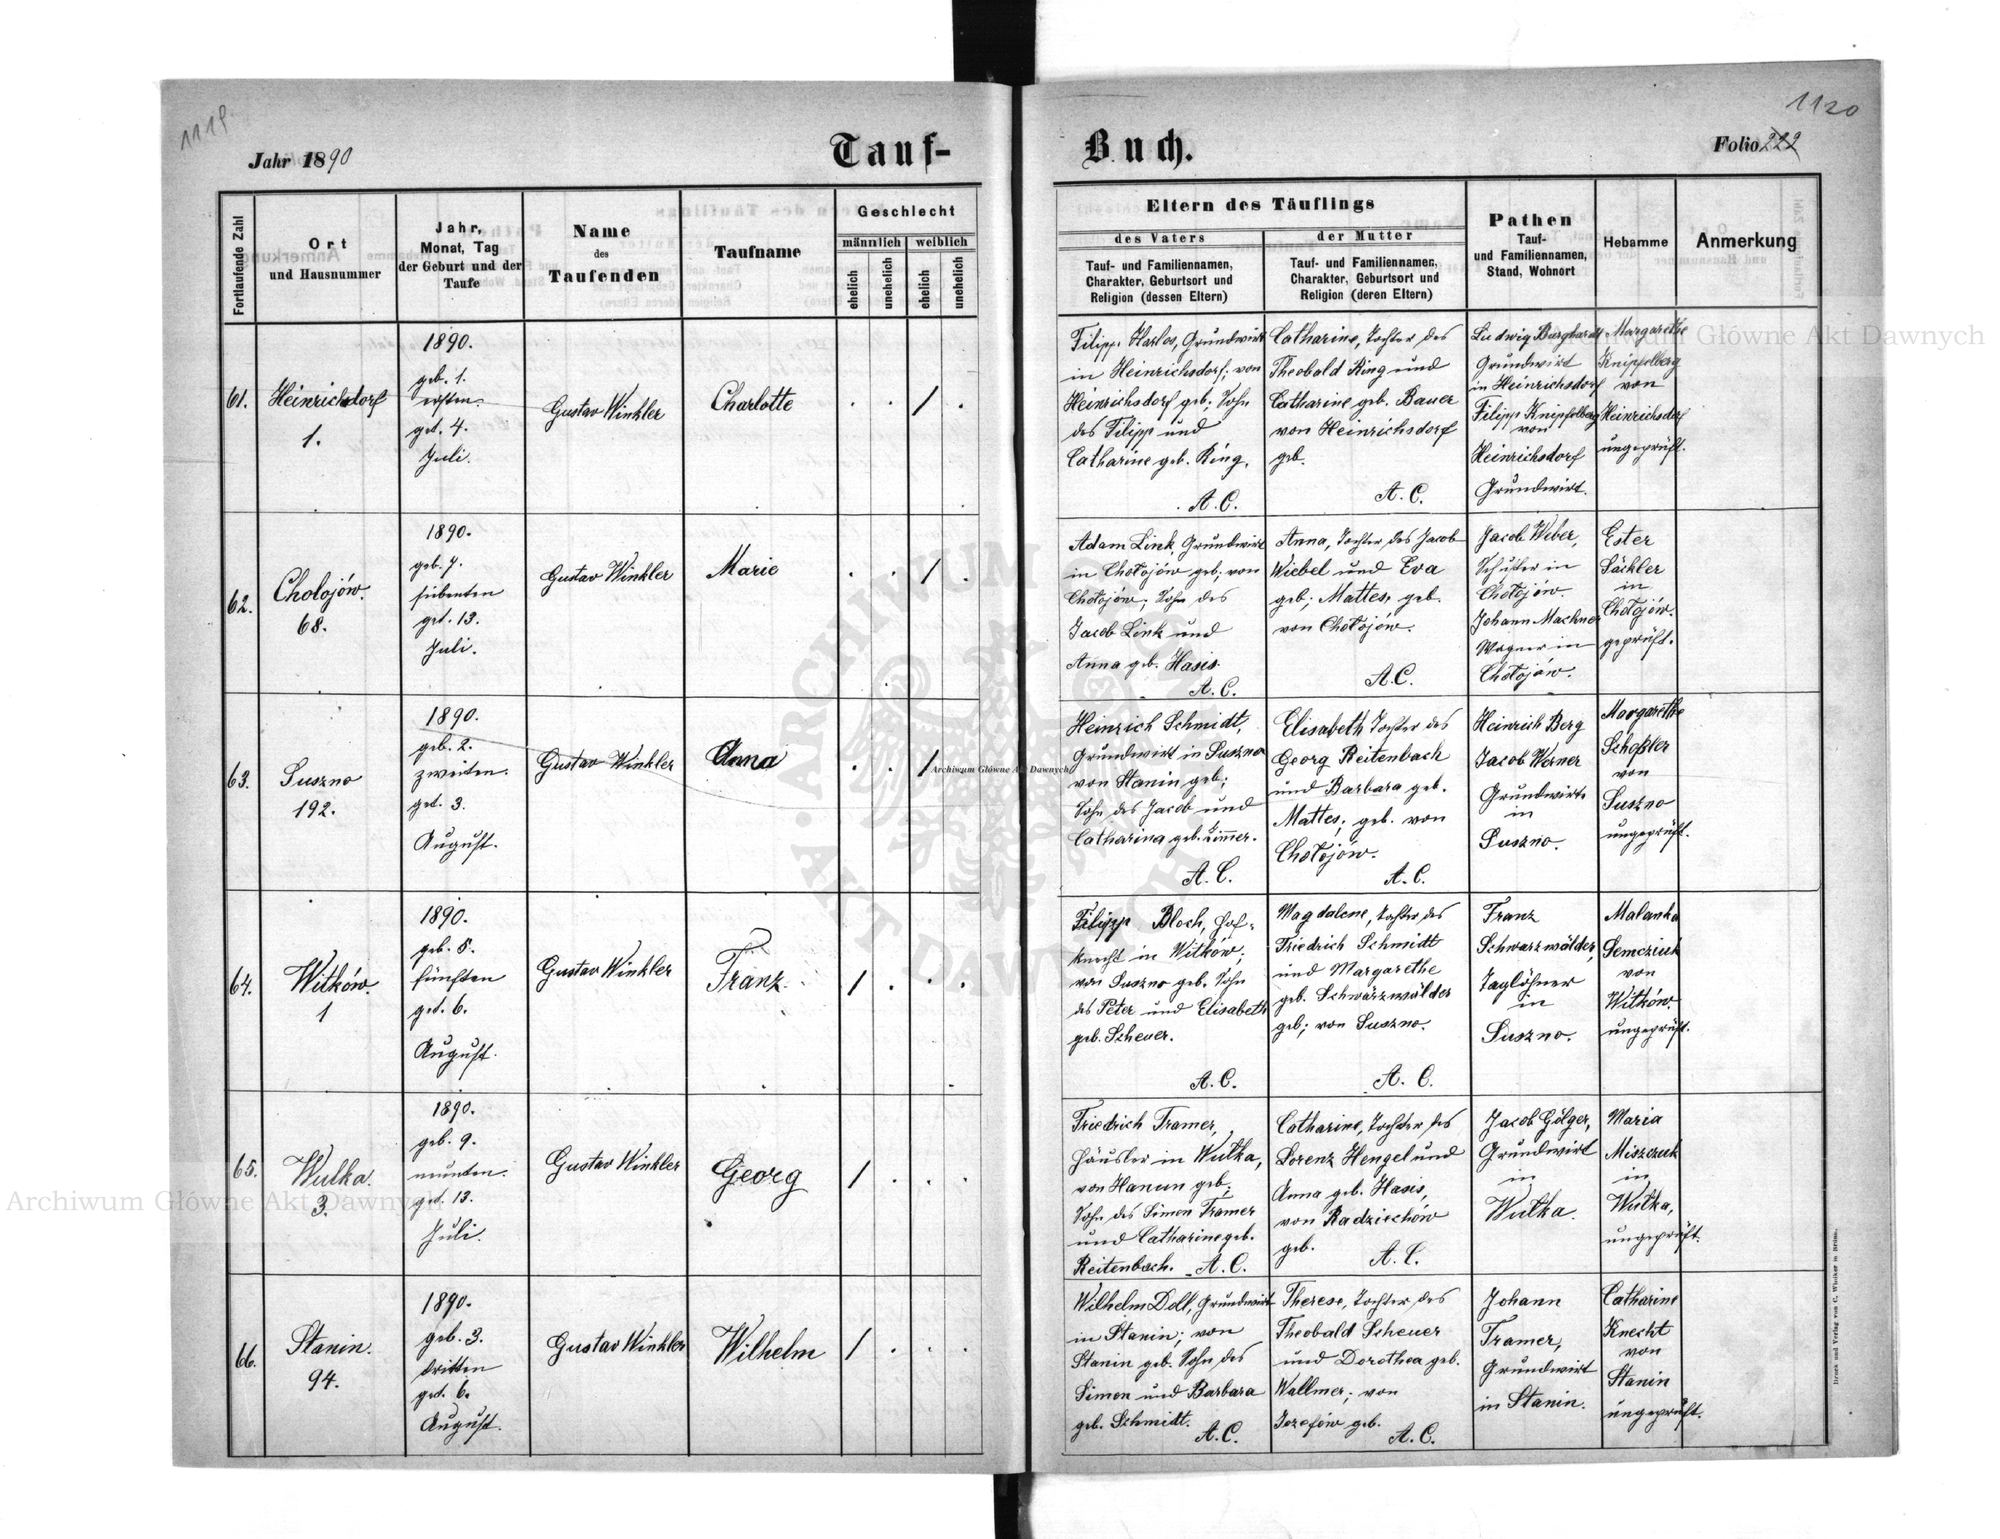 1119
Jahr 1890
Tauf-
Fortlaufende Zahl
Ort
und Hausnummer
Jahr,
Monat, Tag
der Geburt und der
Taufe
Name
des
Taufenden
Taufname
Geschlecht
männlich
weiblich
ehelich
unehelich
ehelich
unehelich
61.
Heinrichsdorf
1.
1890.
geb. 1.
ersten.
get. 4.
Juli.
Gustav Winkler
Charlotte
62.
Chołojów.
68.
1890.
geb. 7.
siebenten
get. 13.
Juli.
Gustav Winkler
Marie
63.
Suszno
192.
1890.
geb. 2.
zweiten.
get. 3.
August.
Gustav Winkler
Anna
64.
Witków.
1
1890.
geb. 5.
fünften
get. 6.
August.
Gustav Winkler
Franz
65.
Wulka.
3.
1890.
geb. 9.
neunten.
get. 13.
Juli.
Gustav Winkler
Georg
66.
Stanin.
94.
1890.
geb. 3.
dritten
get. 6.
August.
Gustav Winkler
Wilhelm
1120
Buch.
Folio 222
Eltern des Täuflings
des Vaters
der Mutter
Tauf- und Familiennamen,
Charakter, Geburtsort und
Religion (dessen Eltern)
Tauf- und Familiennamen,
Charakter, Geburtsort und
Religion (deren Eltern)
Pathen
Tauf-
und Familiennamen,
Stand, Wohnort
Hebamme
Anmerkung
Filipp Harlos, Grundwirt
in Heinrichsdorf; von
Heinrichsdorf geb; Sohn
des Filipp und
Catharine geb. Ring.
A. C.
Catharine, Tochter des
Theobald Ring und
Catharine geb. Bauer
von Heinrichsdorf
geb.
A. C.
Ludwig Burghardt
Grundwirt
in Heinrichsdorf
Filipp Knipfelberg
von
Heinrichsdorf
Grundwirt.
Margarethe
Knipfelberg
von
Heinrichsdorf
ungeprüft.
Adam Link, Grundwirt
in Chołojów geb; von
Chołojów; Sohn des
Jacob Link und
Anna geb. Hasis.
A. C.
Anna, Tochter des Jacob
Wiebel und Eva
geb; Mattes, geb.
von Chołojów.
A.C.
Jacob Weber,
Schuster in
Chołojów.
Johann Machner
Wagner in
Chołojów.
Ester
Säckler
in
Chołojów.
geprüft.
Heinrich Schmidt,
Grundwirt in Suszno
von Stanin geb;
Sohn des Jacob und
Catharina geb. Zimmer.
A. C.
Elisabeth Tochter des
Georg Reitenbach
und Barbara geb.
Mattes, geb. von
Chołojów.
A. C.
Heinrich Berg
Jacob Werner
Grundwirte
in
Suszno.
Margarethe
Schoßler
von
Suszno
ungeprüft.
Filipp Bloch, Hof-
knecht in Witków;
von Suszno geb. Sohn
des Peter und Elisabeth
geb. Scheuer.
A. C.
Magdalene, Tochter des
Friedrich Schmidt
und Margarethe
geb. Schwärzwälder
geb; von Suszno.
A. C.
Franz
Schwarzwälder,
Taglöhner
in
Suszno.
Malanka
Semcziuk
von
Witków.
ungeprüft.
Friedrich Tramer,
Häusler in Wulka,
von Hanun geb;
Sohn des Simon Tramer
und Catharine geb.
Reitenbach. A. C.
Catharine, Tochter des
Lorenz Hengel und
Anna geb. Hasis,
von Radziechów
geb.
A. C.
Jacob Gölger,
Grundwirt
in
Wulka.
Maria
Miszczuk
in
Wulka,
ungeprüft.
Wilhelm Dell, Grundwirt
in Stanin; von
Stanin geb. Sohn des
Simon und Barbara
geb. Schmidt.
A. C.
Therese, Tochter des
Theobald Scheuer
und Dorothea geb.
Wallmer; von
Jozefów geb.
A. C.
Johann
Tramer,
Grundwirt
in Stanin.
Catharine
Knecht
von
Stanin
ungeprüft.
Druck und Verlag von C. Winiker in Brünn.
Archiwum Główne Akt Dawnych
Archiwum Główne Akt Dawnych
Archiwum Główne Akt Dawnych
ARCHIWUM GŁÓWNE AKT DAWNYCH